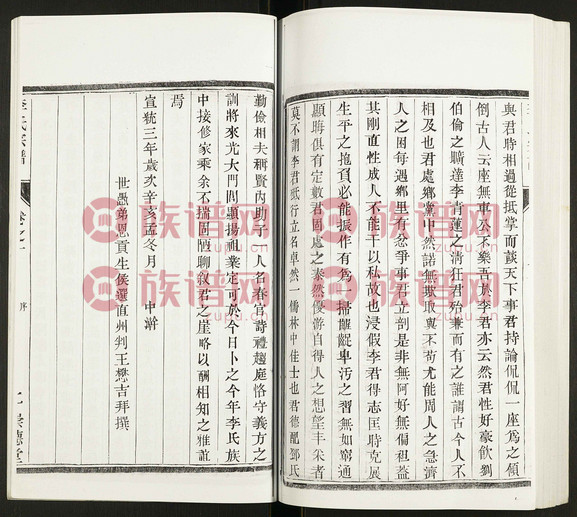 與君時相過從抵掌而談天下事君持論侃侃一座為之傾
倒古人云座無車公不樂吾於李君亦云然君性好豪飲劉
伯倫之曠達李青蓮之清狂君殆兼而有之誰謂古今人不
相及也君處鄉黨中然諾無欺取與不苟尤能周人之急濟
人之困每遇鄉里有忿爭事君立剖是非無阿好無偏袒蓋
其剛直性成人不能干以私故也浸假李君得志匡時克展
生平之抱負必能振作有為一掃齷齪卑汚之習無如窮通
顯晦俱有定數君固處之泰然優游自得人之想望丰采者
莫不謂李君砥行立名卓然一儒林中佳士也君德配鄧氏
勤儉相夫稱賢內助子一人名春官詩禮趨庭恪守義方之
訓將來光大門閭顯揚祖業定可於今日卜之今年李氏族
中接修家乘余不揣固陋聊敘君之崖略以酬相知之雅誼
焉
宣統三年歲次辛亥孟冬月 中澣
世愚弟恩貢生侯選直州判王懋吉拜撰
李氏宗譜
卷之一
序
七
崇德堂
族谱网
www.zupu.cn
族谱网
www.zupu.cn
族谱网
www.zupu.cn
族谱网
www.zupu.cn